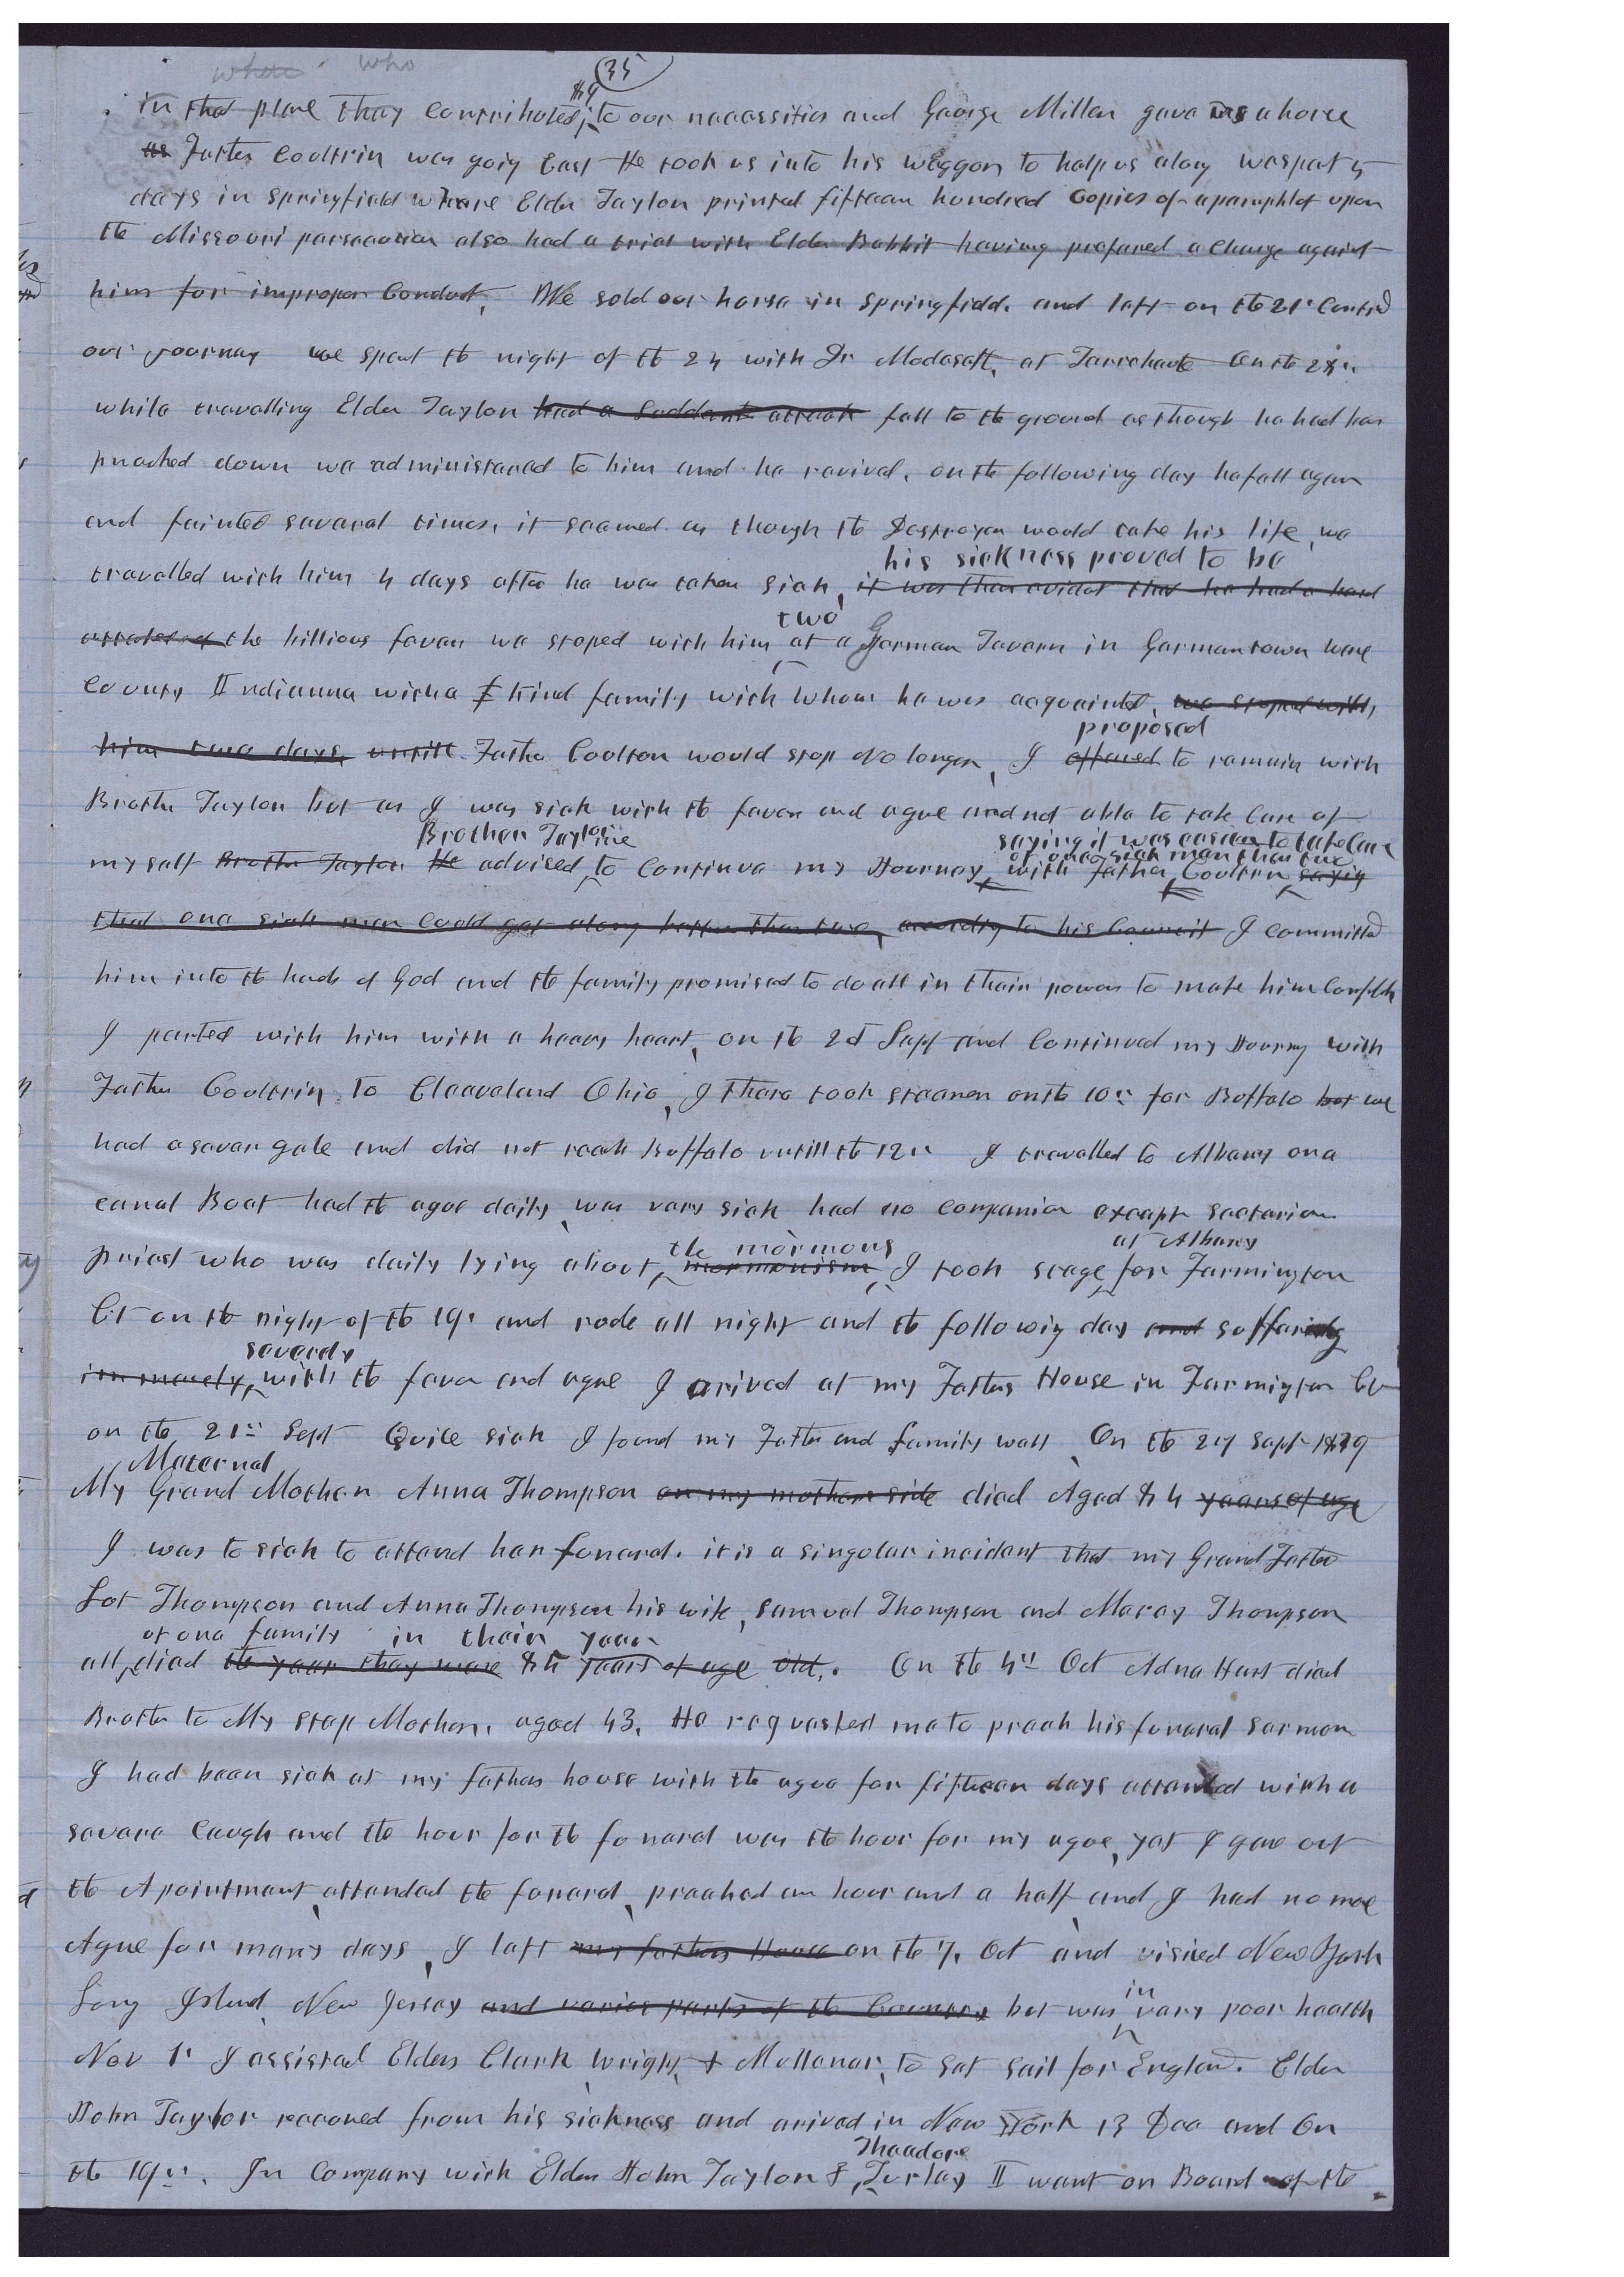 35
when who
in that place they contributed $9 to our necessities and George Miller gave us a horse
us Father Coultrin was going East He took us into his waggon to help us along we spent 5
days in Springfield where Elder Taylor printed fifteen hundred Copies of a pamphlet upon
the Missouri persecution also had a trial with Elder Babbit having prefared a Charge against
him for improper Conduct. We sold our horse in Springfield. and left on the 21st Contind
our journey we spent the night of the 24 with Dr Modesett, at Terrehaute On the 28th
while travelling Elder Taylor had a suddent attack fell to the ground as though he had ben
knocked down we administered to him and he revived. on the following day he fell again
and fainted several times, it seemed as though the Destroyer would take his life, we
his sickness proved to be
travelled with him 4 days after he was taken sick, it was then evident that he had a hard
two
attacked of the billious fever we stoped with him at a German Tavern in Germantown Wane
County Indianna with a kind family with whom he was acquainted, we stoped with
proposed
him two days, untill Father Coulton would stop No longer, I offered to remain with
Brother Taylor but as I was sick with the fever and ague and not able to take Care of
Brother Taylor me saying it was easier to take Care of one sick man than two
my self Brother Taylor He advised to Continue my Journey with Father Coultrin saying
that one sick man Could get along better than two, according to his Council I committed
him into the hands of God and the family promised to do all in their power to make him Comfitble
I parted with him with a heavy heart, on the 2d Sept and Continued my Journey with
Father Coultrin to Cleaveland Ohio, I there took steamer on the 10th for Buffalo but we
had a sever gale and did not reach Buffalo untill the 12th I travelled to Albany on a
canal Boat had the ague daily, was very sick had no companion except sectarian
the mormons at Albany
priest who was daily lying about mormonism, I took stage for Farmington
Ct on the night of the 19th and rode all night and the followig day and suffering
severely
immensely, with the fever and ague I arived at my Fathers House in Farmigton Ct
on the 21st Sept Quite sick I found my Father and family well, On the 27 Sept 1839
Maternal
My Grand Mother Anna Thompson on my mothers side died Aged 84 years of age
I was to sick to attend her funeral. it is a singular incident that my Grand Father
Lot Thompson and Anna Thompson his wife, Samuel Thompson and Mercy Thompson
of one family in their year
all died the year they were 84 years of age old. On the 4th Oct Adna Hart died
Brother to My step Mother, aged 43, He requested me to preach his funeral sermon
I had been sick at my fathers house with the ague for fifteen days attended with a
severe Caugh and the hour for the funeral was the hour for my ague, yet I gave out
the Apointment, attended the funeral, preached an hour and a half and I had no more
Ague for many days, I left my fathers House on the 7, Oct and visited New York
in
Long Island, New Jersey and varios parts of the Country but was very poor health
Nov 1st I assisted Elders Clark, Wright, & Mulloner, to set sail for England. Elder
John Taylor recovred from his sickness and arived in New York 13 Dec and On
Theodore
the 19th. In Company with Elder John Taylor & Turley I want on Board of the